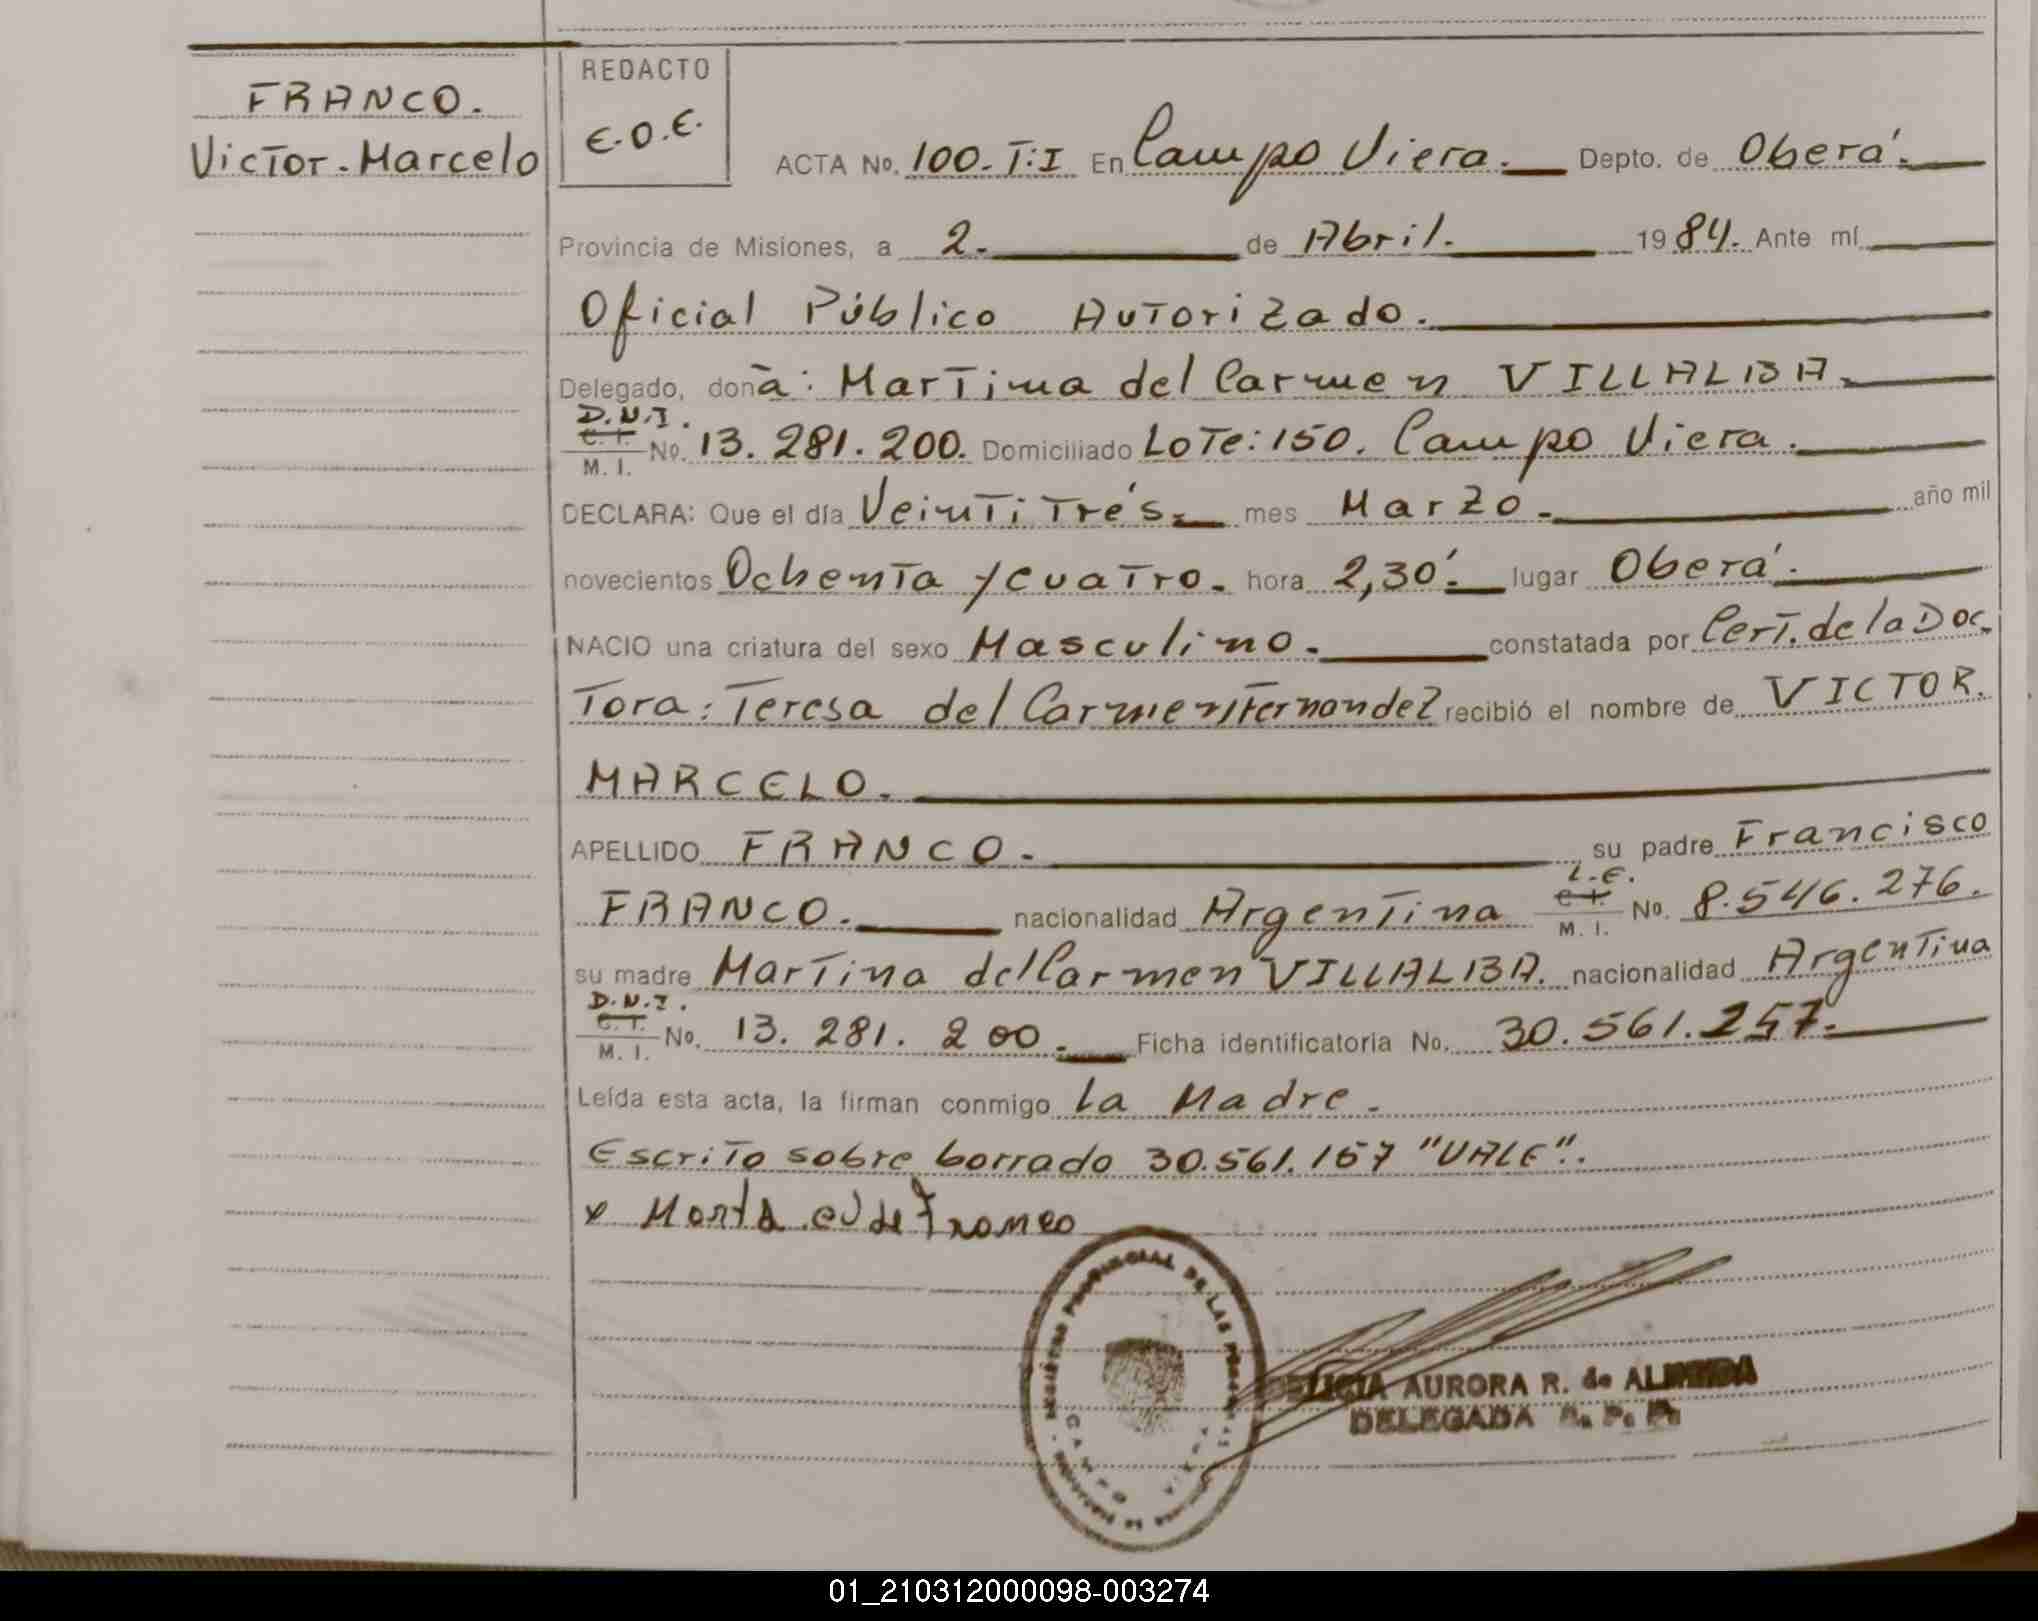 FRANCO.
Victor. Marcelo
REDACTO
E.O.E.
ACTA No. 100. T:I En Campo Viera. Depto. de Oberá.
Provincia de Misiones, a 2. de Abril. 1984. Ante mí
Oficial Público Autorizado.
Delegado, doña: Martina del Carmen VILLALBA.
D.N.I.
C. I.
M. I. No. 13.281.200. Domiciliado Lote: 150. Campo Viera.
DECLARA: Que el día Veintitrés. mes Marzo. año mil
novecientos Ochenta y cuatro. hora 2,30'. lugar Oberá.
NACIO una criatura del sexo Masculino. constatada por Cert. de la Doc
tora: Teresa del Carmen Fernandez recibió el nombre de VICTOR.
MARCELO.
APELLIDO FRANCO. su padre Francisco
L.E.
FRANCO. nacionalidad Argentina C. I. M. I. No. 8.546.276.
su madre Martina del Carmen VILLALBA. nacionalidad Argentina
D.N.I.
C. I.
M. I. No. 13.281.200. Ficha identificatoria No. 30.561.257.
Leída esta acta, la firman conmigo la Madre.
Escrito sobre borrado 30.561.157 "VALE".
REGISTRO PROVINCIAL DE LAS PERSONAS
CAMPO VIERA
AURORA R. de ALMEIDA
DELEGADA R. P. P.
01_210312000098-003274